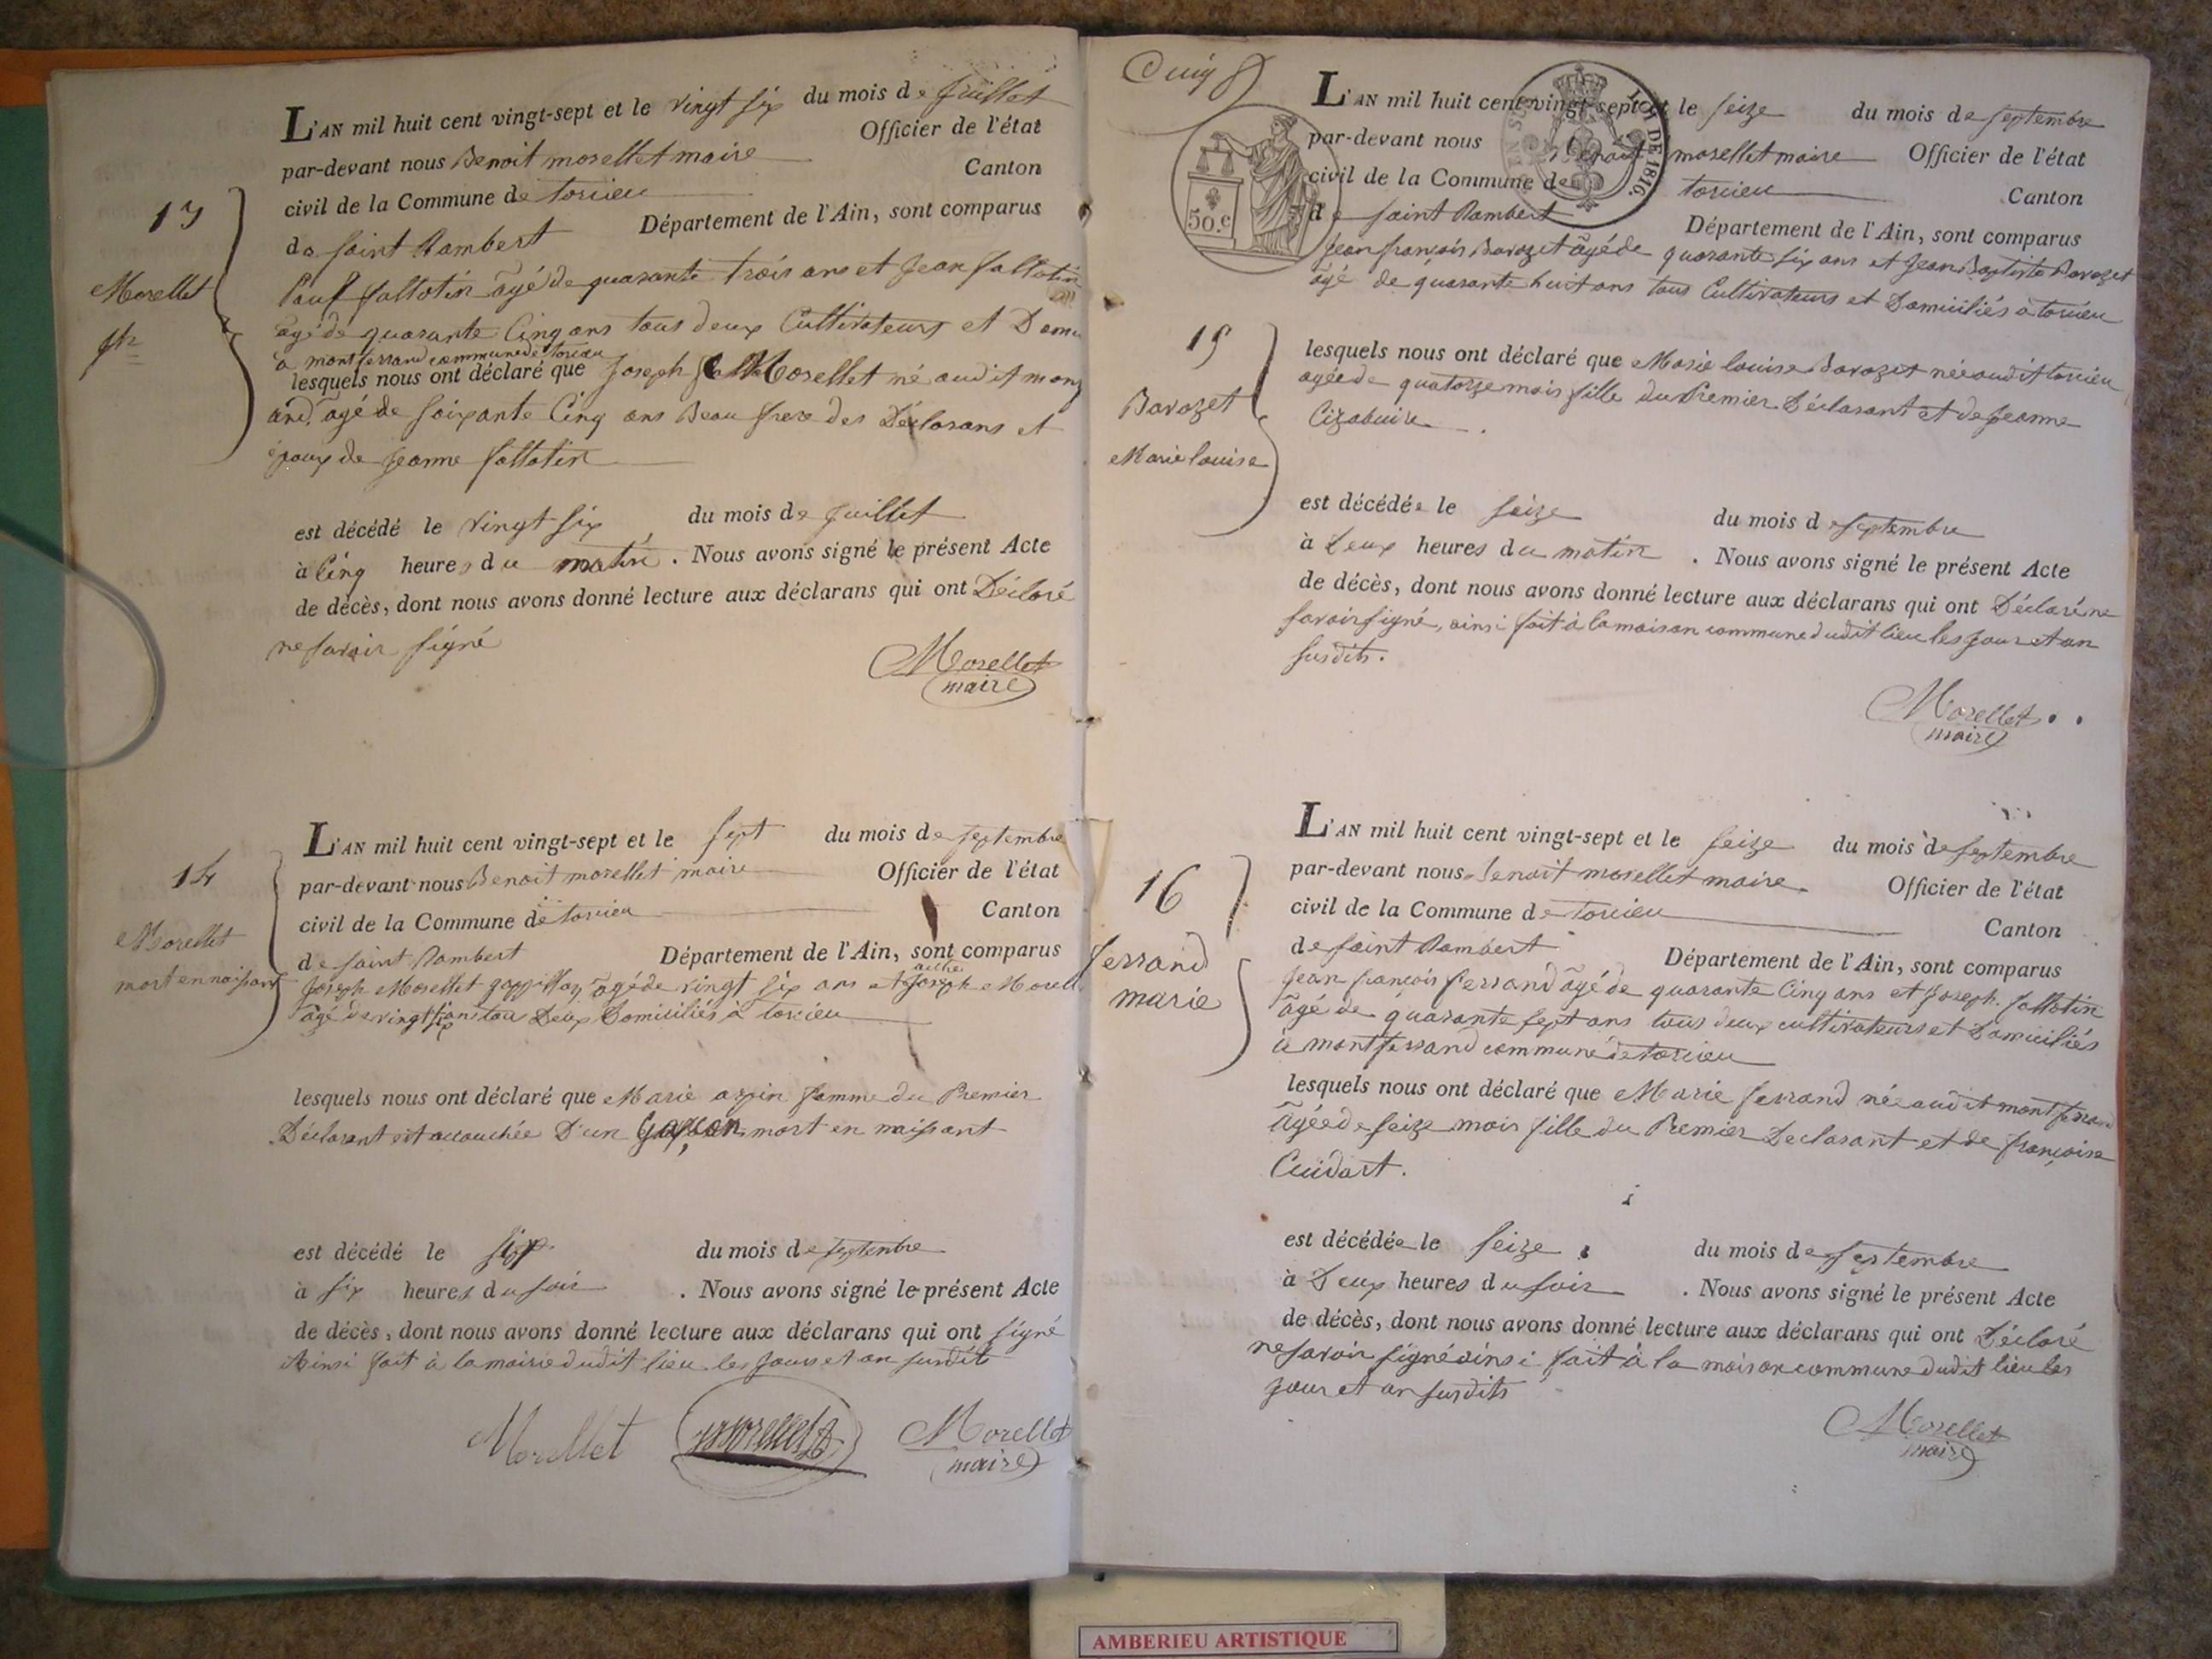 13
Morellet
L'AN mil huit cent vingt-sept et le vingt six du mois de Juillet
par-devant nous Benoit morellet maire Officier de l'état
civil de la Commune de torcieu Canton
de saint Rambert Département de l'Ain, sont comparus
âgé de quarante trois ans et Jean fallatin
âgé de quarante Cinq ans tous deux Cultivateurs et
à montferrand commune de torcieu
lesquels nous ont déclaré que Joseph Morellet né audit
âgé de soixante Cinq ans Beau frere des Déclarans et
époux de Jeanne fallatin
est décédé le vingt six du mois de Juillet
à Cinq heures du matin. Nous avons signé le présent Acte
de décès, dont nous avons donné lecture aux déclarans qui ont Déclaré
ne savoir signé
Morellet
maire
14
Morellet
mort en naissant
L'AN mil huit cent vingt-sept et le sept du mois de septembre
par-devant nous Benoit morellet maire Officier de l'état
civil de la Commune de torcieu Canton
de saint Rambert Département de l'Ain, sont comparus
Joseph Morellet âgé de vingt six ans et Joseph
âgé de vingt Deux Domiciliés à torcieu
lesquels nous ont déclaré que Marie arpin femme du Premier
Déclarant est accouchée D'un Garçon mort en naissant
est décédé le six du mois de septembre
à six heures du soir. Nous avons signé le présent Acte
de décès, dont nous avons donné lecture aux déclarans qui ont signé
Ainsi fait à la mairie dudit lieu les jour et an susdits
Morellet Morellet Morellet
maire
50.c
LOI DE 1816.
15
Barozet
Marie louise
L'AN mil huit cent vingt-sept et le seize du mois de septembre
par-devant nous Benoit morellet maire Officier de l'état
civil de la Commune de torcieu Canton
de saint Rambert Département de l'Ain, sont comparus
Jean françois Barozet âgé de quarante six ans et Jean Baptiste Barozet
âgé de quarante huit ans tous Cultivateurs et Domiciliés à torcieu
lesquels nous ont déclaré que Marie louise Barozet née audit torcieu
agée de quatorze mois fille du Premier Déclarant et de Jeanne
est décédée le seize du mois de septembre
à Deux heures du matin. Nous avons signé le présent Acte
de décès, dont nous avons donné lecture aux déclarans qui ont Déclaré ne
savoir signé, ainsi fait à la maison commune dudit lieu les jour et an
susdits.
Morellet
maire
16
ferrand
marie
L'AN mil huit cent vingt-sept et le seize du mois de septembre
par-devant nous Benoit morellet maire Officier de l'état
civil de la Commune de torcieu Canton
de saint Rambert Département de l'Ain, sont comparus
Jean françois ferrand âgé de quarante Cinq ans et Joseph fallatin
âgé de quarante sept ans tous deux cultivateurs et Domiciliés
à montferrand commune de torcieu
lesquels nous ont déclaré que Marie ferrand née audit montferrand
Agée de seize mois fille du Premier Declarant et de françoise
Cuidart.
est décédée le seize du mois de septembre
à Deux heures du soir. Nous avons signé le présent Acte
de décès, dont nous avons donné lecture aux déclarans qui ont Déclaré
ne savoir signé ainsi fait à la maison commune dudit lieu les
jour et an susdits
Morellet
maire
AMBERIEU ARTISTIQUE